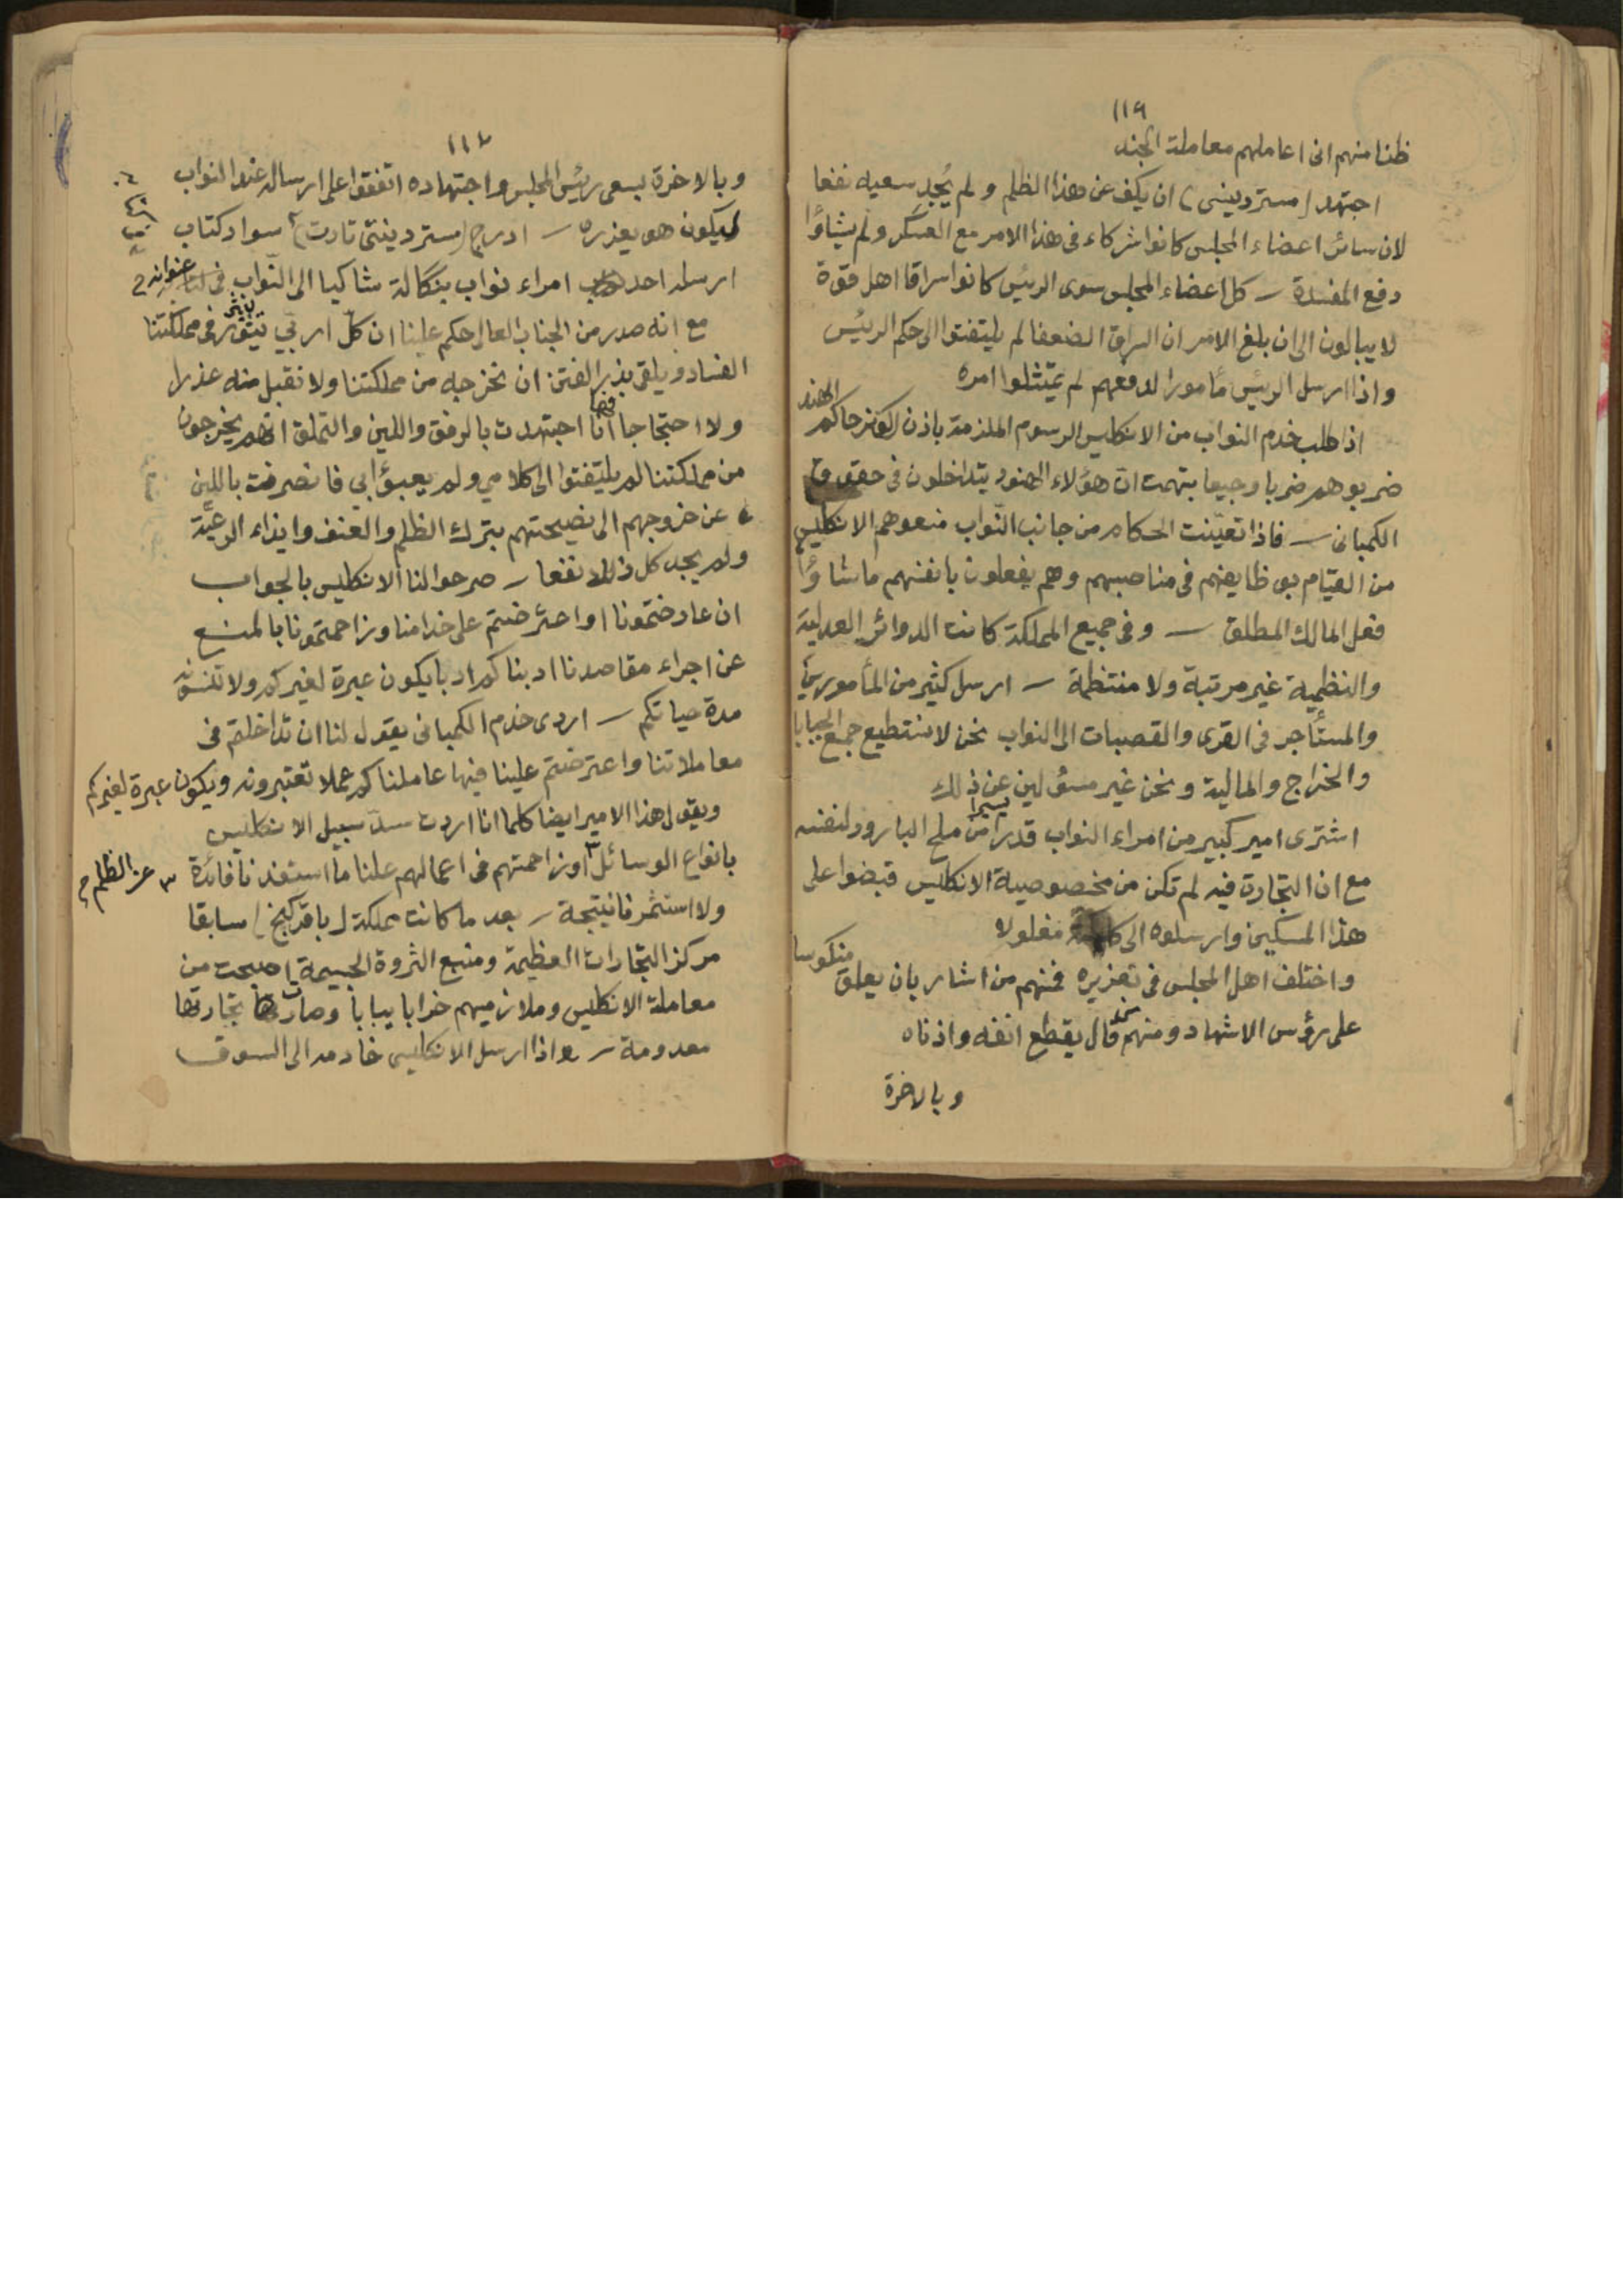 ١١٦
ظنا منهم انى اعاملهم معاملة الجند
اجتهد (مستر دينسى) ان يكف عن هذا الظلم ولم يُجدِ سعيه نفعا
لان سائر اعضاء المجلس كانوا شركاء فى هذا الامر مع العسكر ولم يشاؤا
دفع المفسدة – كل اعضاء المجلس سوى الرئيس كانوا سراقا اهل قوة
لا يبالون الى ان بلغ الامر ان السراق الضعفا لم يلتفتوا الى حكم الرئيس
واذا ارسل الرئيس مأمورا لدفعهم لم يمتثلوا امره
اذا طلب خدم النواب من الانكليس الرسوم الملزمة باذن حاكم الهند
ضربوهم ضربا وجيعا بتهمت ان هؤلاء الهنود يتداخلون فى حقوق
الكمبانى – فاذا تعيّنت الحكام من جانب النّواب منعوهم الانكليس
من القيام بوظايفهم فى مناصبهم وهم يفعلون بانفسهم ما شاؤا
فعل المالك المطلق – وفى جميع المملكة كانت الدوائر العدلية
والنظمية غير مرتبة ولا منتظمة – ارسل كثير من المأمورين
والمستأجر فى القرى والقصبات الى النواب نحن لا نستطيع جمع الجبايا
والخراج والمالية ونحن غير مسؤلين عن ذلك
اشترى امير كبير من امراء النواب قدرا يسيرا من ملح البارود لنفسه
مع ان التجارت فيه لم تكن من مخصوصية الانكليس قبضوا على
هذا المسكين وارسلوه الى مغلولا
واختلف اهل المجلس فى تعزيره فمنهم من اشار بان يعلق منكوسا
على رؤس الاشهاد ومنهم من قال يقطع انفه واذناه
وبالاخرة
١١٧
وبالاخرة بسعى رئيس المجلس واجتهاده اتفقوا على ارسال عند النواب
ليكون هو يعزره – ادرج (مستر دينتى تارت) سواد كتاب
ارسله احد امراء نواب بنكالة شاكيا الى النّواب فى عنوانه
مع انه صدر من الجناب العالى حكم علينا ان كلّ اربّي يثير فى مملكتنا
الفساد ويلقى بذر الفتن ان نخرجه من مملكتنا ولا نقبل منه عذرا
ولا احتجاجا انا اجتهدت بالرفق واللين والتملق انهم يخرجون
من مملكتنا لم يلتفتوا الى كلامى ولم يعبؤا بي فانصرفت باللين
عن خروجهم الى نصيحتهم بترك الظلم والعنف وايذاء الرعيّة
ولم يجد كل ذلك نفعا – صرحوا لنا الانكليس بالجواب
ان عارضتمونا او اعترضتم على خدامنا وزاحمتمونا بالمنع
عن اجراء مقاصدنا ادبناكم ادبا يكون عبرة لغيركم ولا تنسونه
مدة حياتكم – اردى خدم الكمبانى يقول لنا ان تداخلتم فى
معاملاتنا واعترضتم علينا فيها عاملناكم عملا تعتبرونه ويكون عبرة لغيركم
ويقول هذا الامير ايضا كلما انا اردت سدّ سبيل الانكليس
بانواع الوسائل ٣ او زاحمتهم فى اعمالهم علنا ما استفدنا فائدة ٣ عن الظلم
ولا استثمرنا نتيجة – بعد ما كانت مملكة (باقركنج) سابقا
مركز التجارات العظيمة ومنبع الثروة الجسيمة اصبحت من
معاملة الانكليس وملازميهم خرابا يبابا وصارت تجارتها
معدومة – واذا ارسل الانكليس خادمه الى السوق